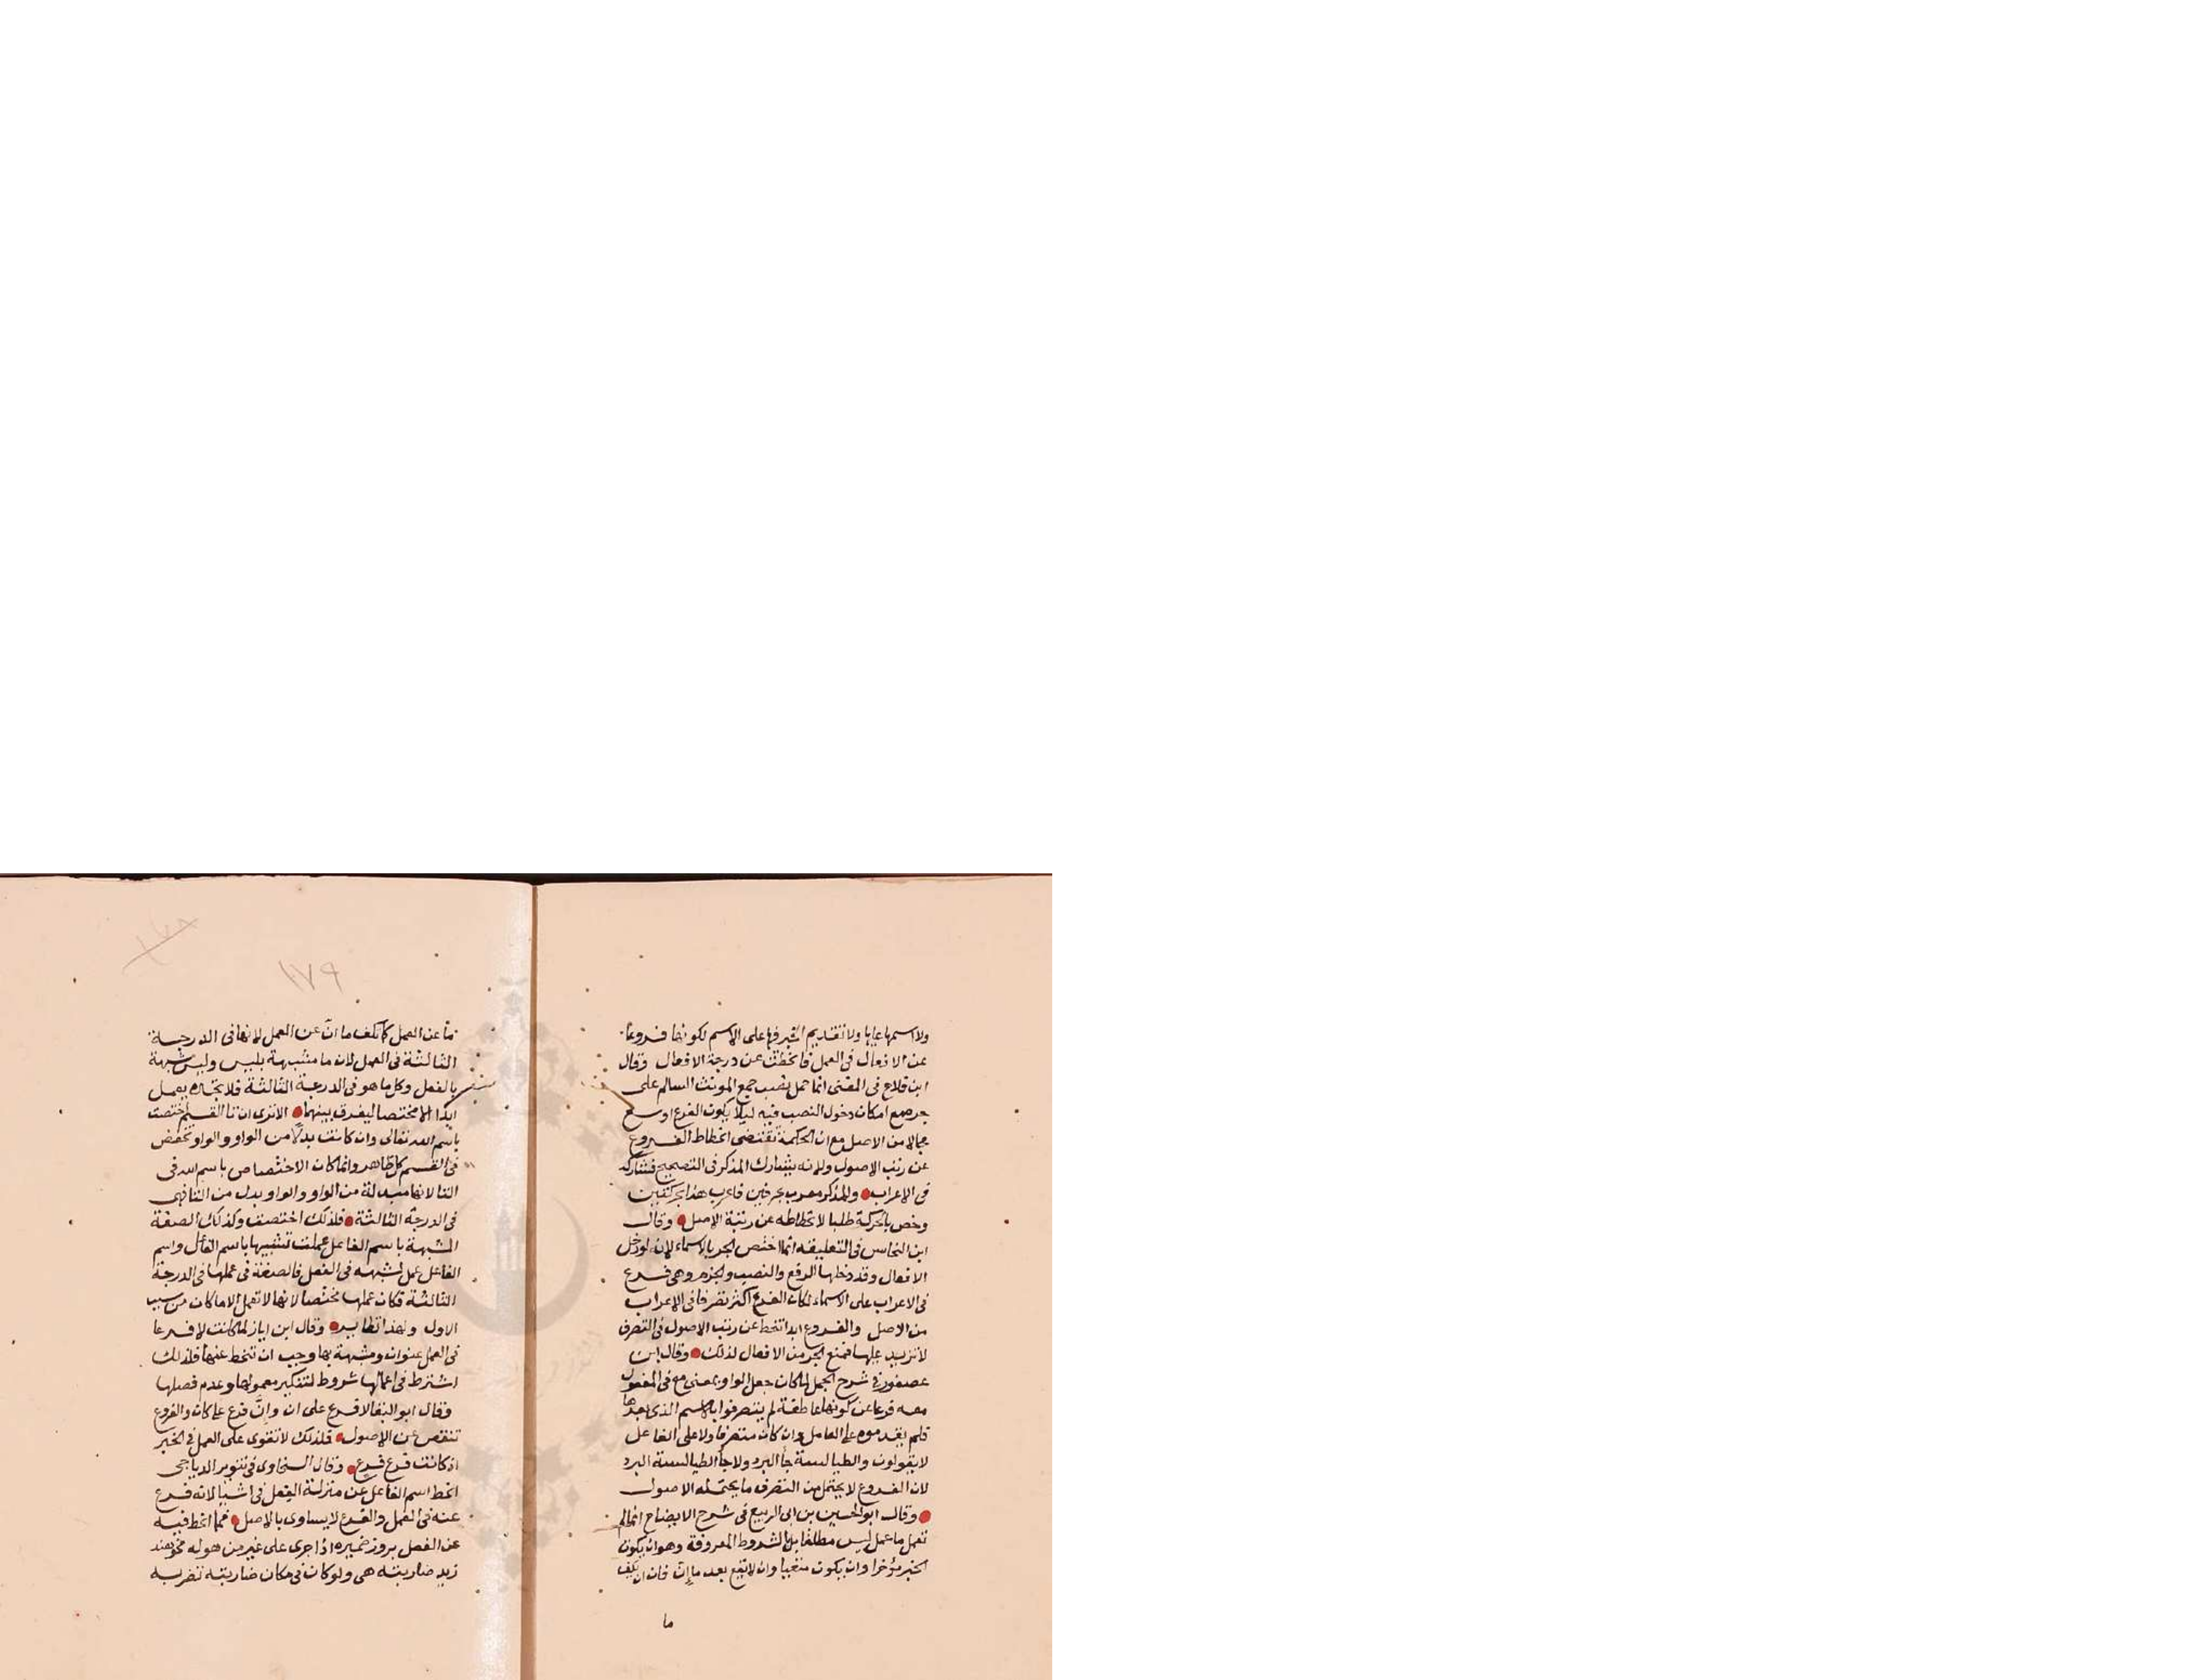 ولا اسمها عليها ولا تقديم الخبر فيها على الاسم لكونها فروعا
عن الافعال فى العمل فانحطت عن درجة الافعال وقال
ابن فلاح فى المغنى انما حمل نصب جمع المونث السالم على
جره مع امكان دخول النصب فيه ليلا يكون الفرع اوسع
مجالا من الاصل مع ان الحكمة تقتضى انحطاط الفروع
عن رتب الاصول ولانه يشارك المذكر فى التصحيح فشاركه
فى الاعراب والمذكر معرب بحرفين فاعرب هذا بحركتين
وخص بالحركة طلبا لانحطاطه عن رتبة الاصل وقال
ابن النحاس فى التعليقه انما اختص الجر بالاسماء لانه لو دخل
الافعال وقد دخلها الرفع والنصب والجزم وهى فرع
فى الاعراب على الاسماء لكان الفرع اكثر تصرفا فى الاعراب
من الاصل والفروع ابدا تنحط عن رتب الاصول فى التصرف
لا تزيد عليها فمنع الجر من الافعال لذلك وقال ابن
عصفور فى شرح الجمل لما كان جعل الواو بمعنى مع فى المفعول
معه فرعا عن كونها عاطفة لم يتصرفوا بالاسم الذى بعدها
فلم يقدموه على العامل وان كان متصرفا ولا على الفاعل
لا يقولون والطيالسة جا البرد ولا جا والطيالسة البرد
لان الفروع لا يحتمل من التصرف ما يحتمله الاصول
وقال ابو الحسين بن ابى الربيع فى شرح الايضاح انما لم
تعمل ما عمل ليس مطلقا بل بالشروط المعروفة وهو ان يكون
الخبر مؤخرا وان يكون منفيا وان لا تقع بعد ما إن فان ان تكف
ما
١٧٩
ما عن العمل كما تكف ما ان عن العمل لانها فى الدرجة
الثالثة فى العمل لان ما مشبهة بليس وليس شبهة
بالفعل وكل ما هو فى الدرجة الثالثة فلا تجده يعمل
ابدا الا مختصا ليفرق بينهما الا ترى ان تا القسم اختصت
باسم الله تعالى وان كانت بدلا من الواو والواو تخفض
فى القسم كل ظاهر وانما كان الاختصاص باسم الله فى
التا لانها مبدلة من الواو والواو بدل من البا فهى
فى الدرجة الثالثة فلذلك اختصت وكذلك الصفة
المشبهة باسم الفاعل عملت تشبيها باسم الفاعل واسم
الفاعل عمل لشبهه فى الفعل فالصفة فى عملها فى الدرجة
الثالثة فكان عملها مختصا لانها لا تعمل الا ما كان من سبب
الاول ولهذا نظاير وقال ابن اياز لما كانت لا فرعا
فى العمل عن ان ومشبهة بها وجب ان تنحط عنها فلذلك
اشترط فى اعمالها شروط لتنكير معمولها وعدم فصلها
وقال ابو البقا لا فرع على ان وإنَّ فرع على كان والفروع
تنقص عن الاصول فلذلك لا تقوى على العمل فى الخبر
اذ كانت فرع فرع وقال السخاوى فى تنوير الدياجى
انحط اسم الفاعل عن منزلة الفعل فى اشيا لانه فرع
عنه فى العمل والفرع لا يساوى بالاصل فمما انحط فيه
عن الفعل بروز ضميره اذا جرى على غير من هو له نحو هند
زيد ضاربته هى ولو كان فى مكان ضاربته تضربه